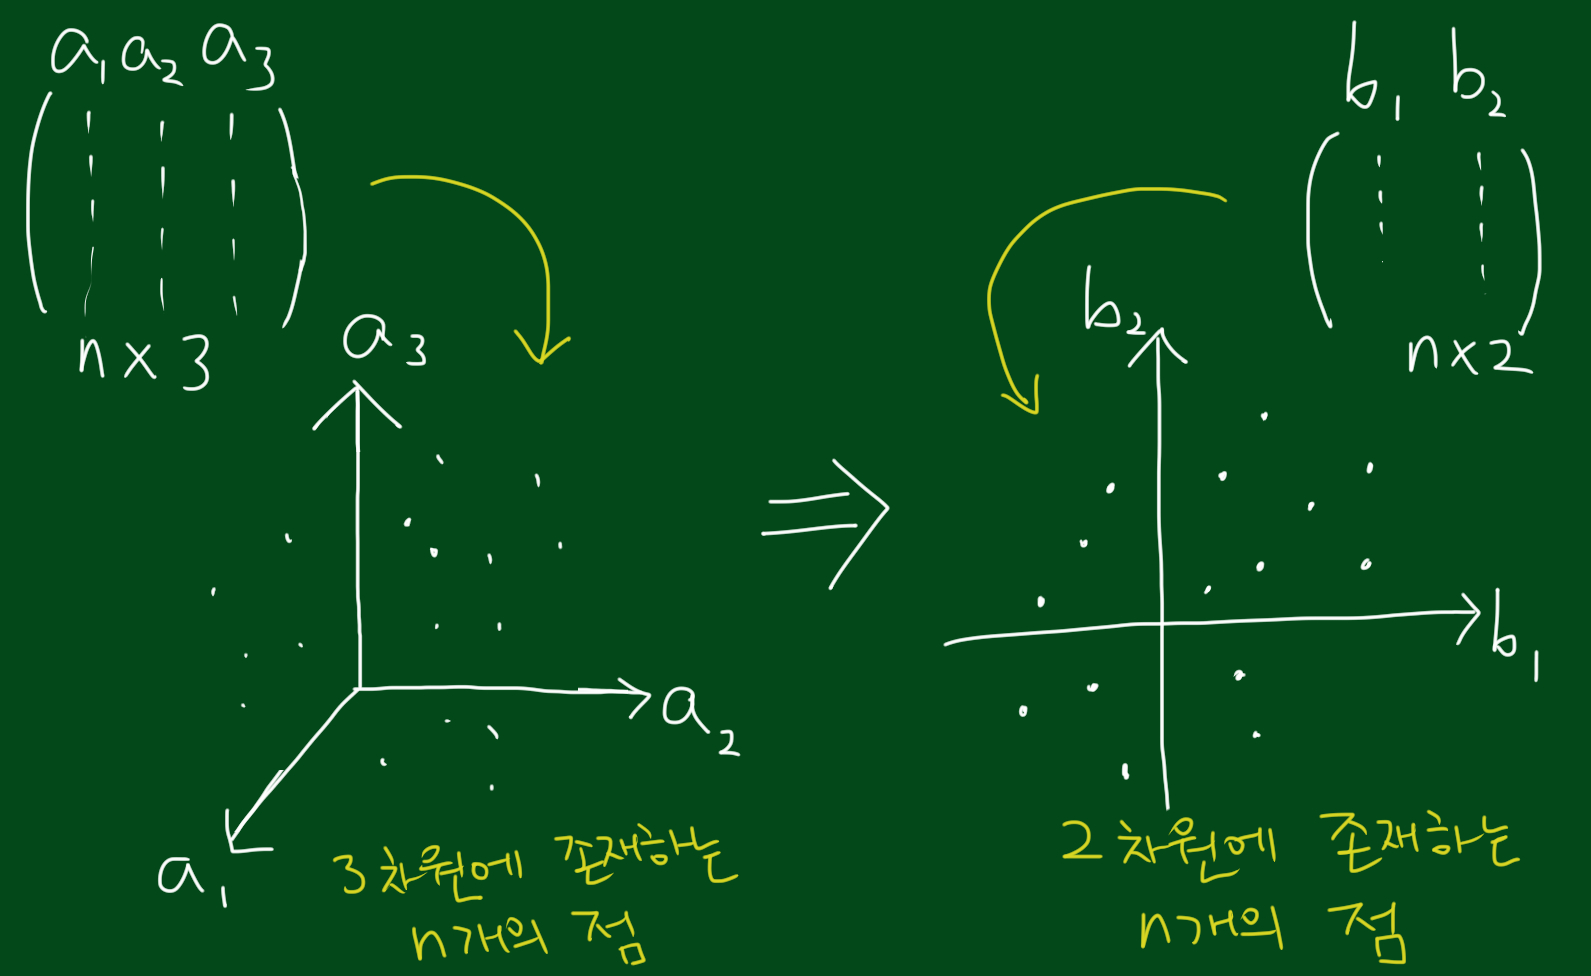 a₁ a₂ a₃
n×3
a₃
a₂
a₁
3차원에 존재하는
n개의 점
⇒
b₁ b₂
n×2
b₂
b₁
2차원에 존재하는
n개의 점